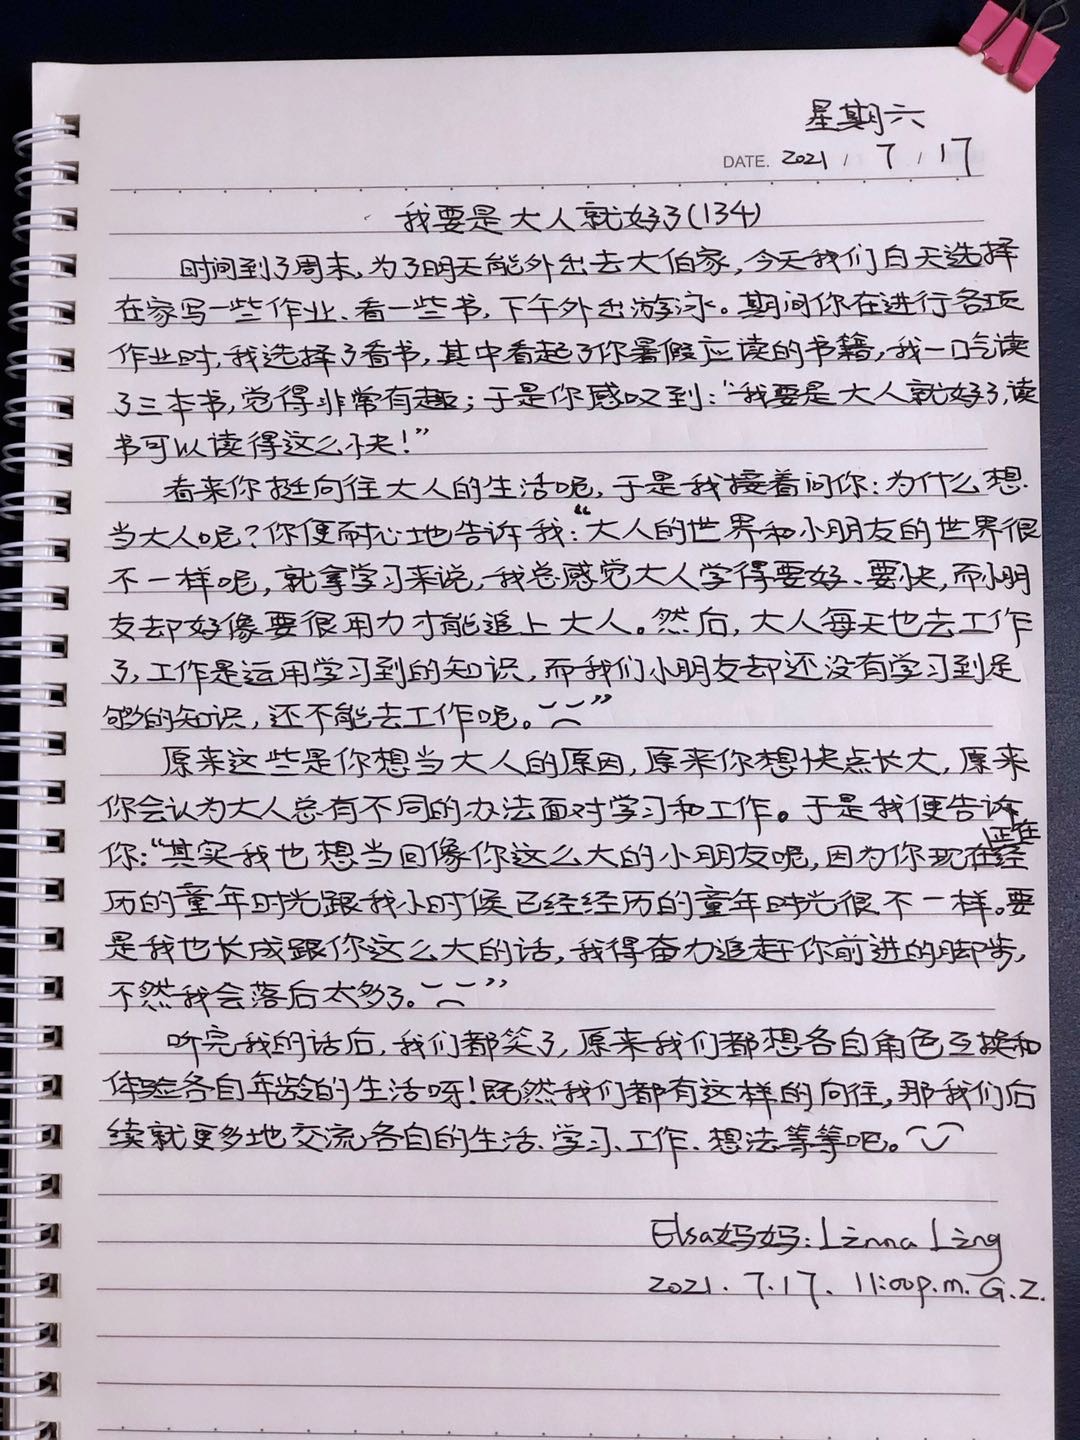 星期六
DATE. 2021 / 7 / 17
我要是大人就好了(134)
时间到了周末,为了明天能外出去大伯家,今天我们白天选择
在家写一些作业、看一些书,下午外出游泳。期间你在进行各项
作业时,我选择了看书,其中看起了你暑假应读的书籍,我一口气读
了三本书,觉得非常有趣;于是你感叹到:“我要是大人就好了,读
书可以读得这么快!”
看来你挺向往大人的生活呢,于是我接着问你:为什么想
当大人呢?你便耐心地告诉我:“大人的世界和小朋友的世界很
不一样呢,就拿学习来说,我总感觉大人学得要好、要快,而小朋
友却好像要很用力才能追上大人。然后,大人每天也去工作
了,工作是运用学习到的知识,而我们小朋友却还没有学习到足
够的知识,还不能去工作呢。”
原来这些是你想当大人的原因,原来你想快点长大,原来
你会认为大人总有不同的办法面对学习和工作。于是我便告诉
你:“其实我也想当回像你这么大的小朋友呢,因为你现在正在经
历的童年时光跟我小时候已经经历的童年时光很不一样。要
是我也长成跟你这么大的话,我得奋力追赶你前进的脚步,
不然我会落后太多了。”
听完我的话后,我们都笑了,原来我们都想各自角色互换和
体验各自年龄的生活呀!既然我们都有这样的向往,那我们后
续就更多地交流各自的生活、学习、工作、想法等等吧。
Elsa妈妈:Linna Ling
2021.7.17. 11:00p.m. G.Z.